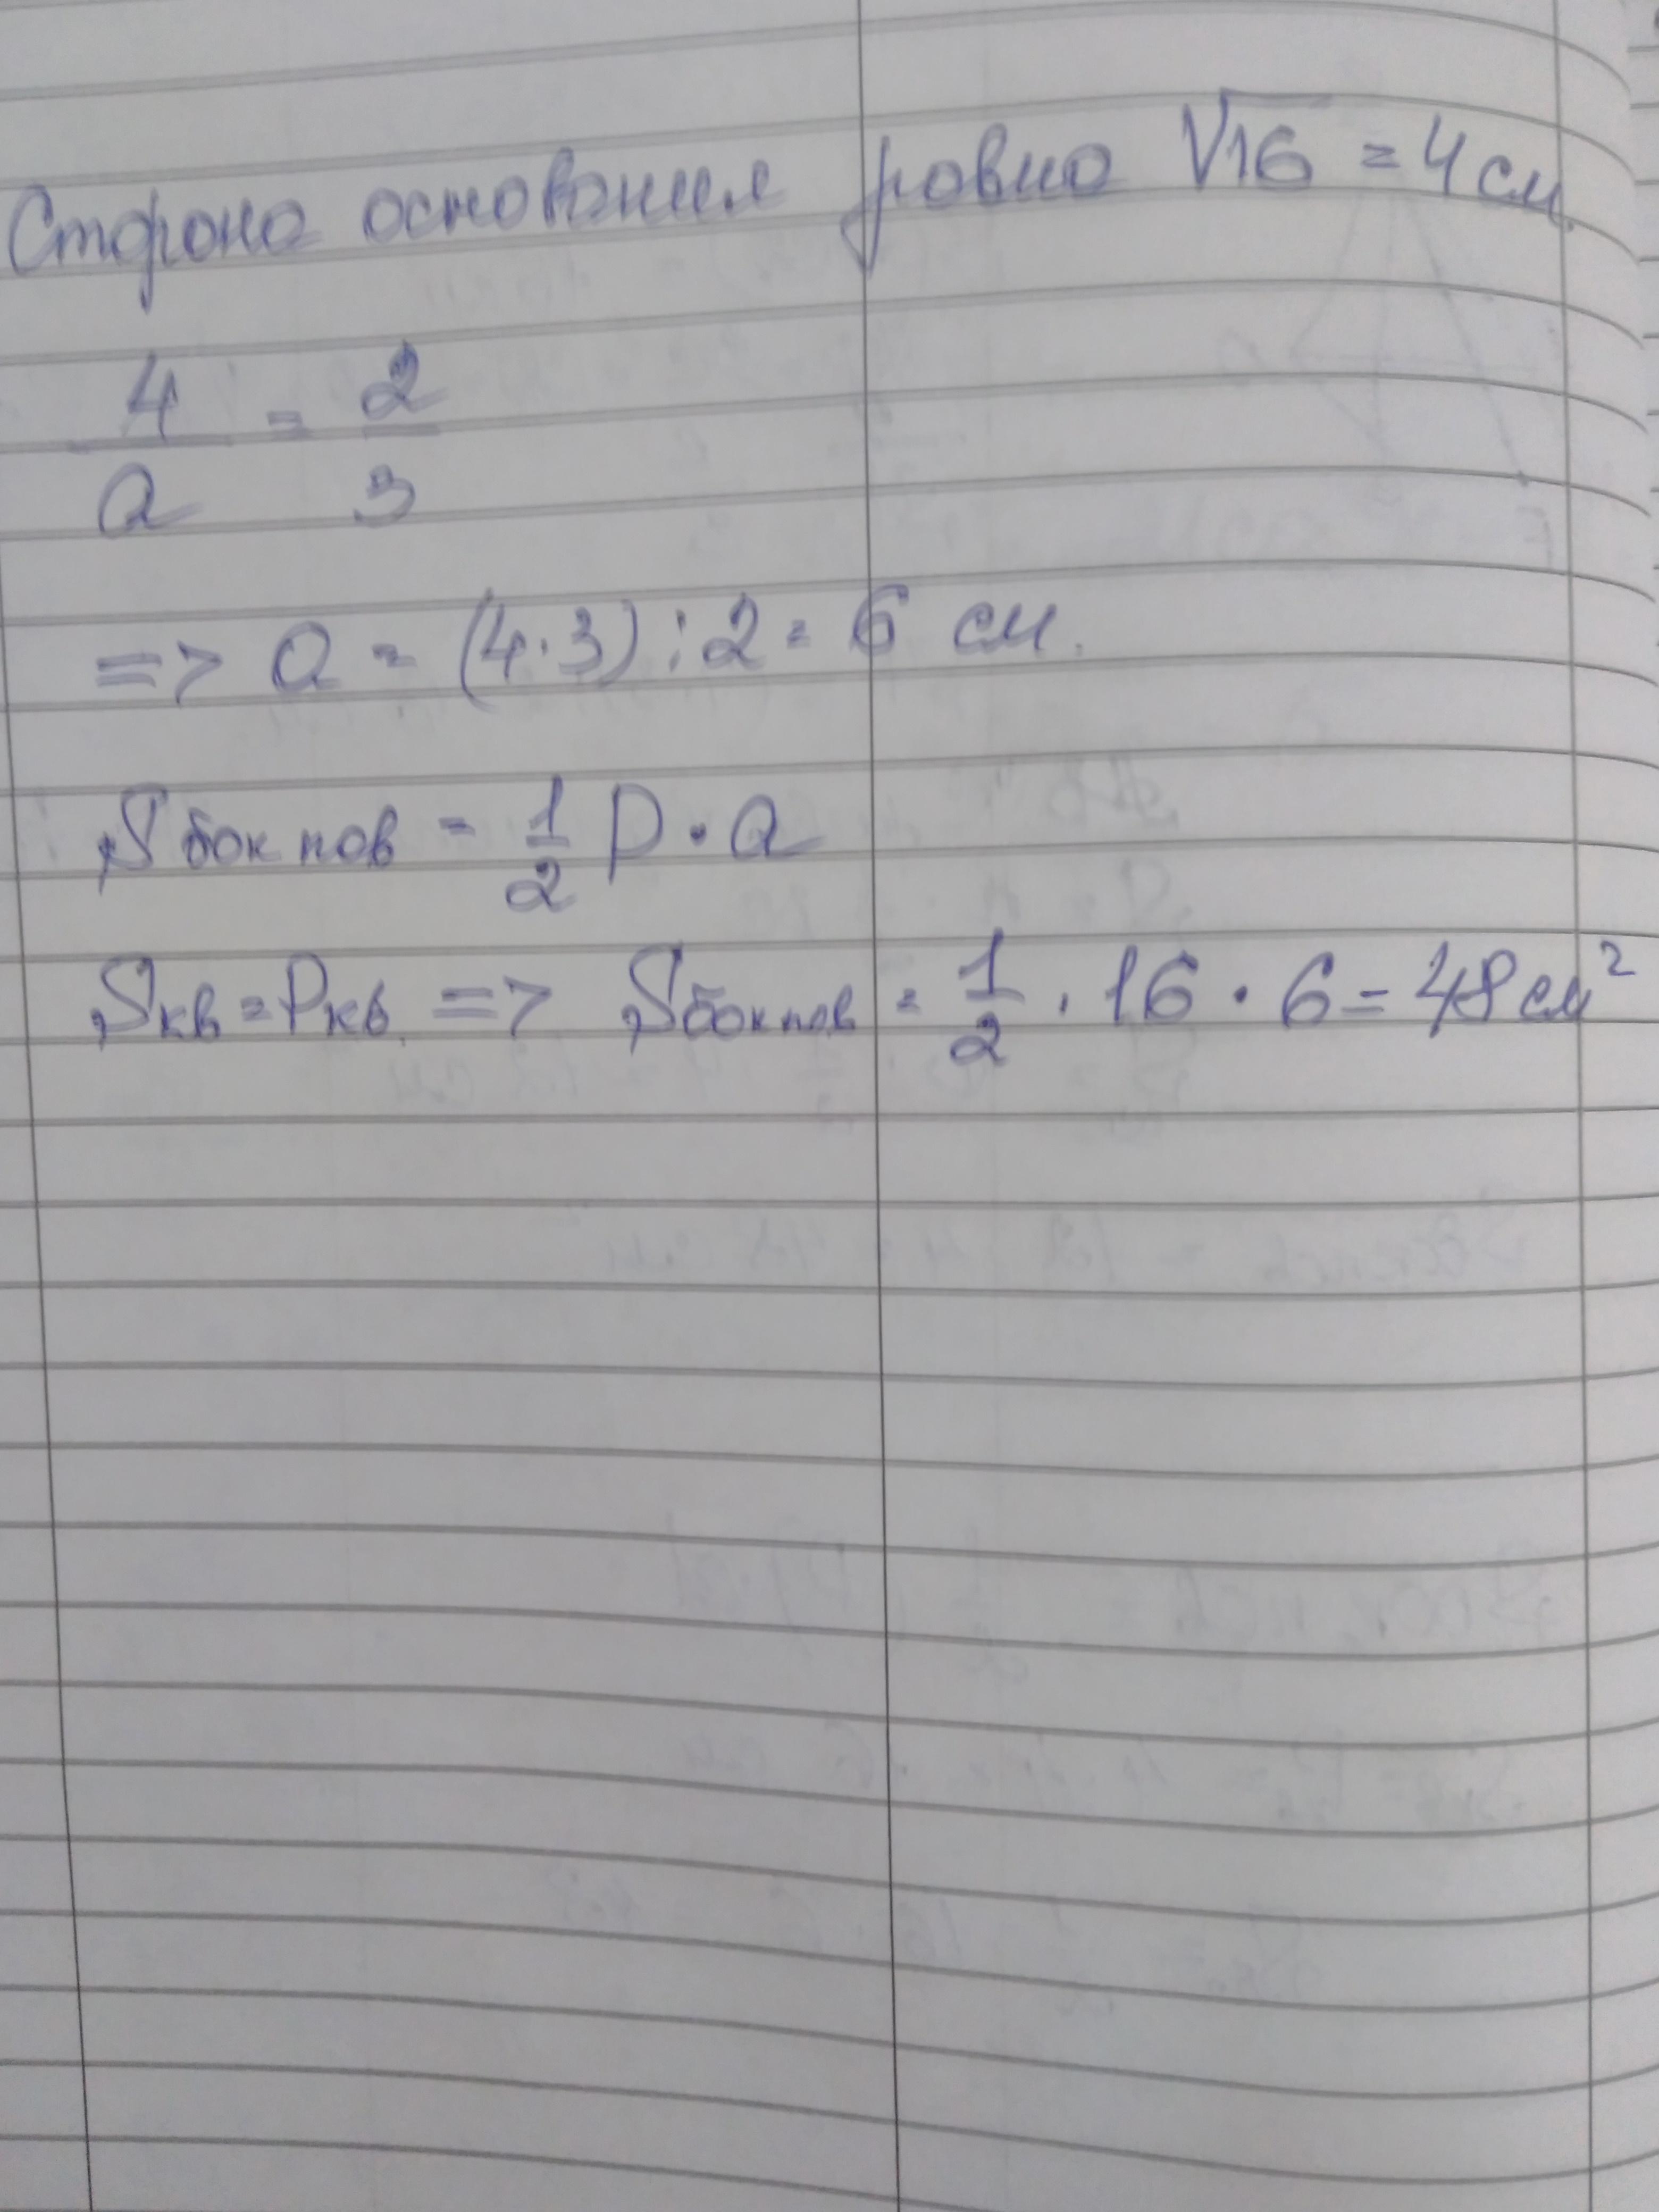 Сторона основания ровно √16 = 4 см.
4/a = 2/3
=> a = (4·3):2 = 6 см.
S бок пов = 1/2 P · a
Sкв = Pкв. => Sбок пов = 1/2 · 16 · 6 = 48 см²